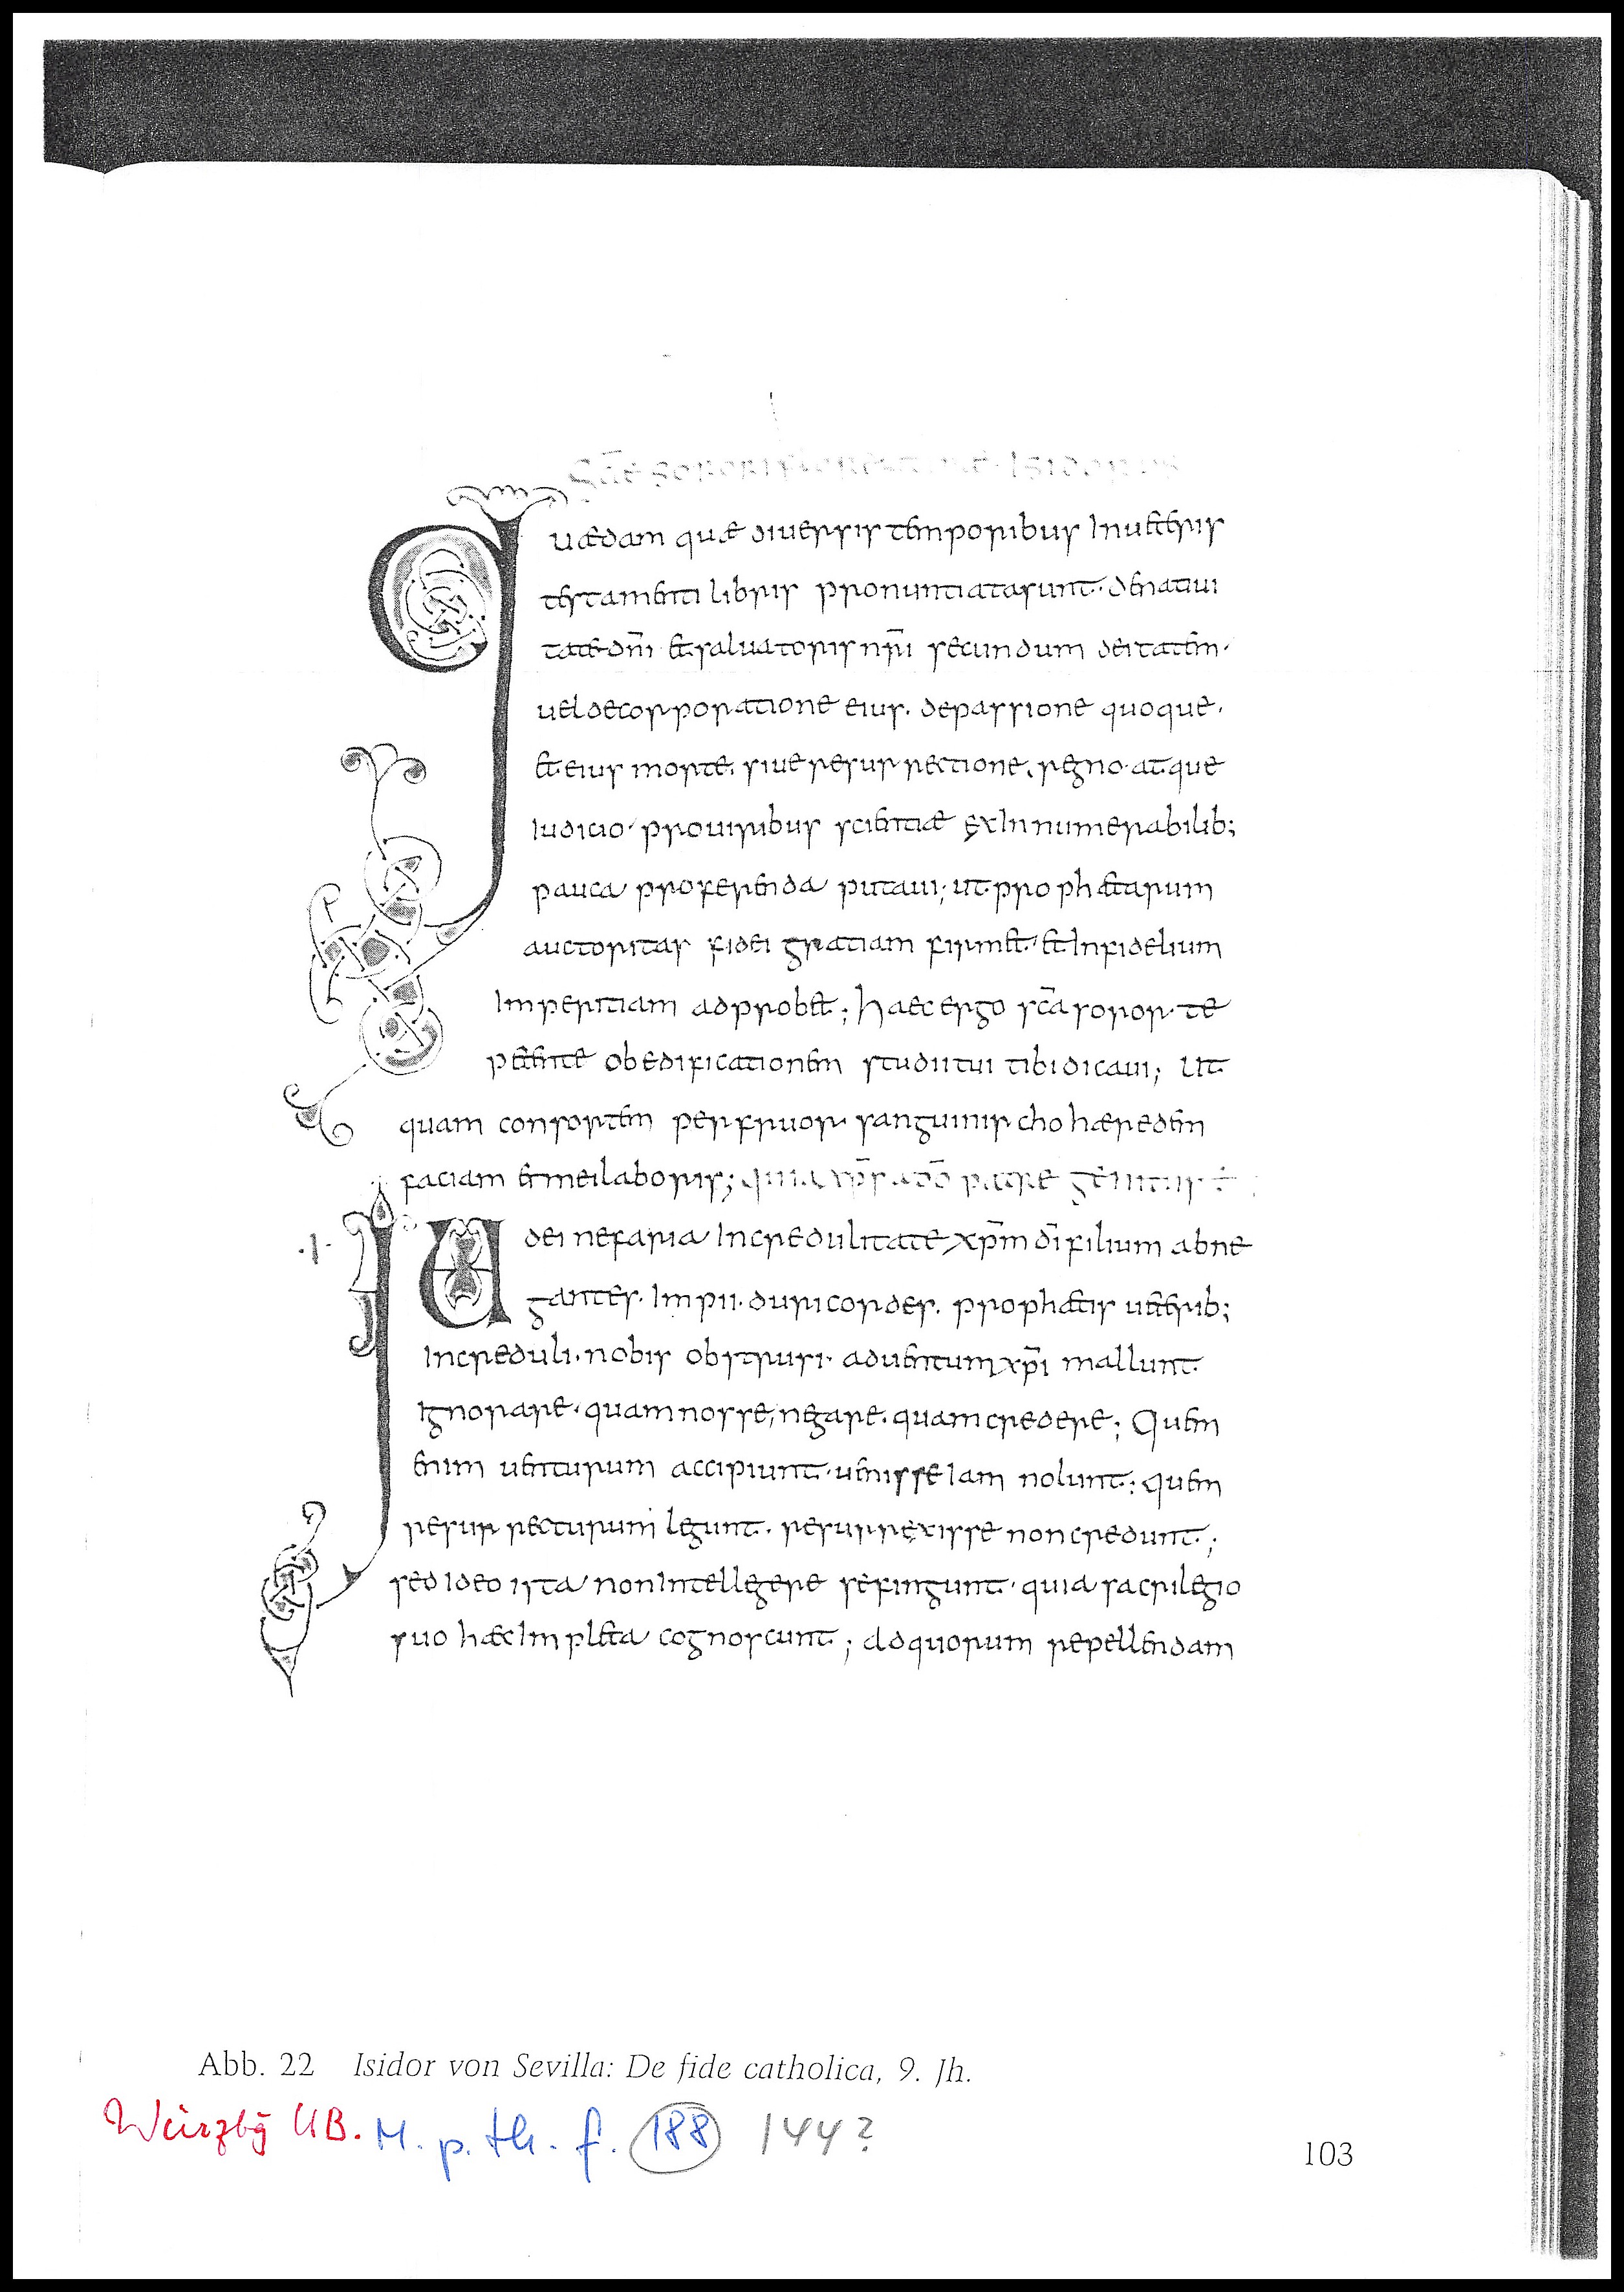 Scae sorori florentinae isidorus
Quaedam quae diuersis temporibus Inueteris
testamenti libris pronuntiatasunt· denatiui
tate dn̄i etsaluatoris nr̄i secundum deitatem·
ueldecorporatione eius· depassione quoque·
et eius morte· siue resurrectione· regno· atque
Iudicio· prouiribus scientiae ęxInnumerabilib;
pauca proferenda putaui; ut prophetarum
auctoritas fidei gratiam firmet· et Infidelium
Imperitiam adprobet; haec ergo sc̄a soror· te
petente obedificationem studii tui tibi dicaui; Ut
quam consortem perfruor sanguinis choheredem
faciam et mei laboris; quia xp̄s a dō patre genitus ē
·I· Iudei nefaria Incredulitate xp̄m dī filium abne
gantes· Impii· duricordes· prophetis ueterib;
Increduli· nobis obstrusi· aduentum xp̄i mallunt
Ignorare· quam nosse, negare· quam credere; Quem
enim uenturum accipiunt· uenisse Iam nolunt; quem
resurrecturum legunt· resurręxisse non credunt;
sed ideo ista non Intellegere se fingunt· quia sacrilegio
suo haec Impleta cognoscunt; Ad quorum repellendam
Abb. 22 Isidor von Sevilla: De fide catholica, 9. Jh.
Würzbg UB. M. p. th. f. 188 144?
103